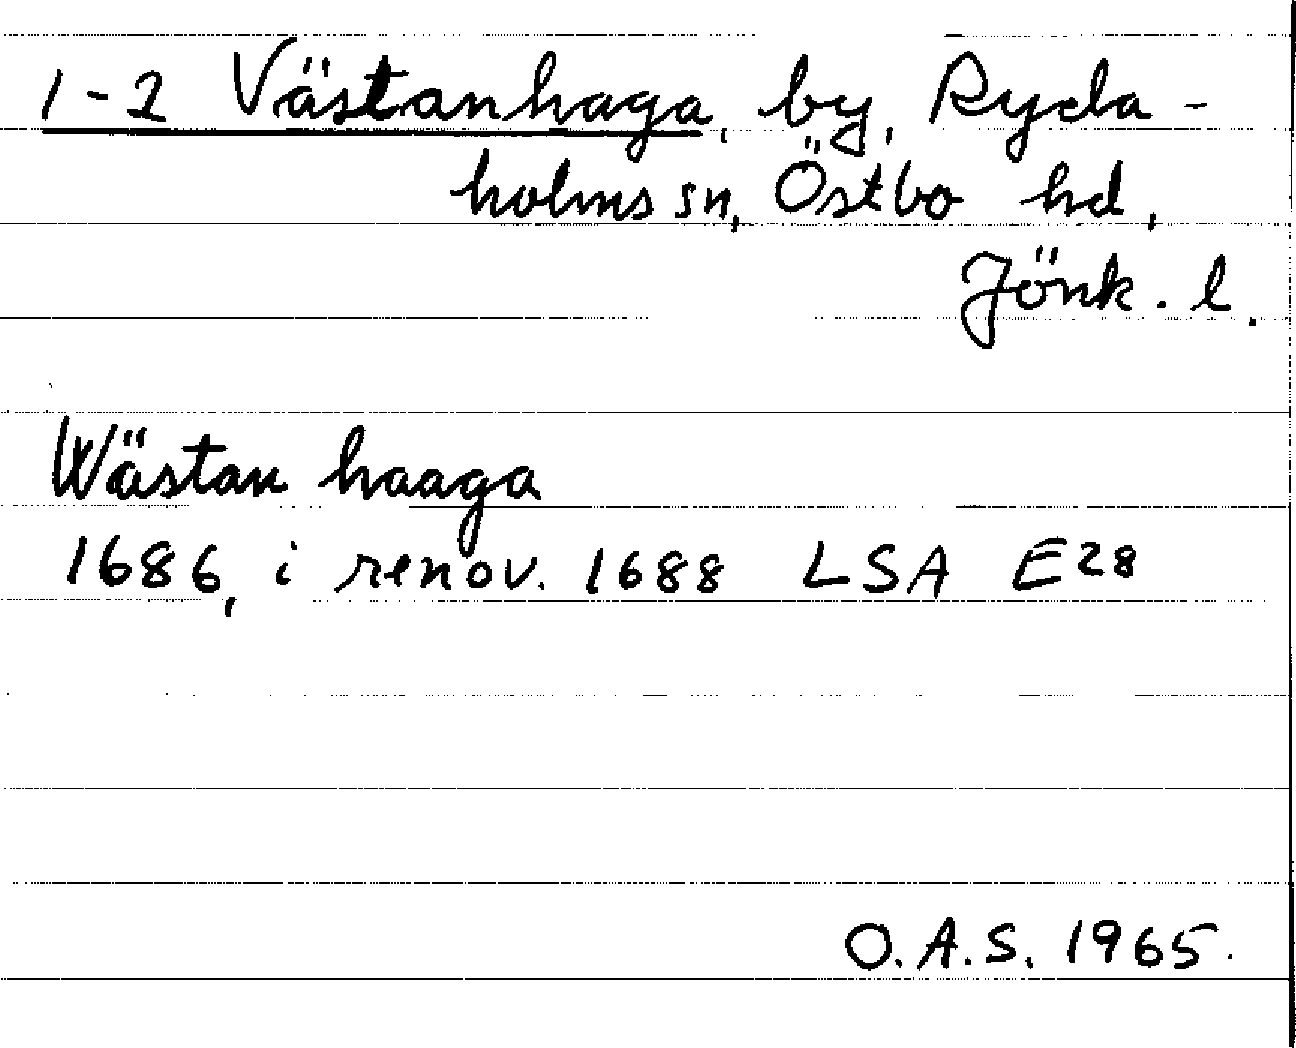 1-2 Västanhaga, by, Ryda-
holms sn, Östbo hd,
Jönk. l.
Wästan haaga
1686, i renov. 1688 LSA E28
O.A.S. 1965.